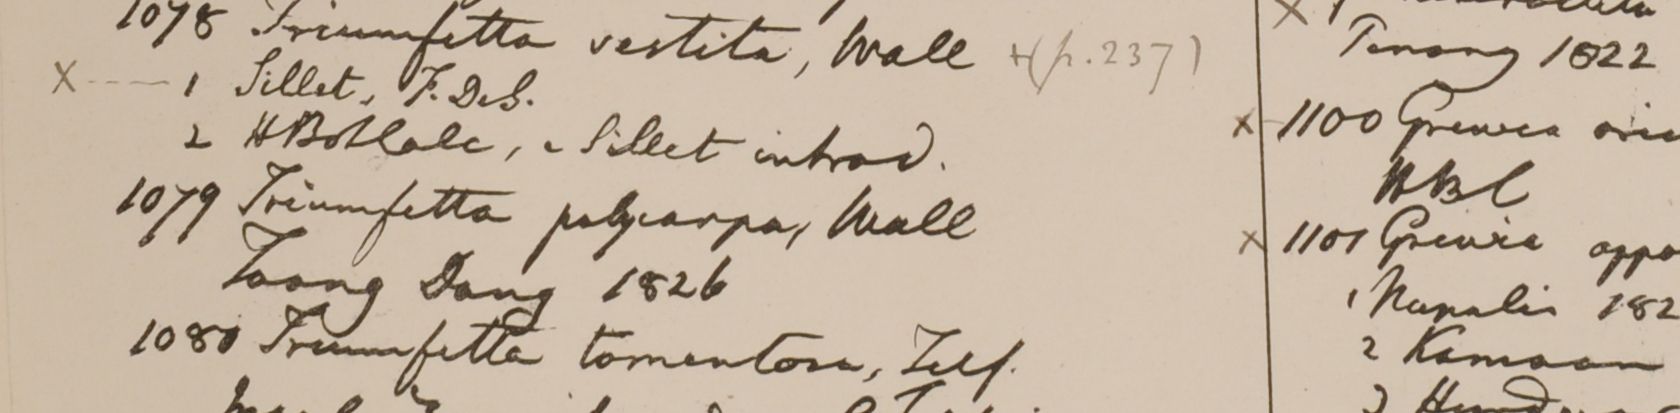 1078 Triumfetta vestita, Wall +(p.237)
X 1 Sillet, F. DeS.
2 HBotCalc, e Sillet introd.
1079 Triumfetta polycarpa, Wall
Taong Dong 1826
1080 Triumfetta tomentosa, Telf.
X
Penang 1822
X 1100 Grewia orie
HBC
X 1101 Grewia oppo
1 Napalia 182
2 Kamaon
3